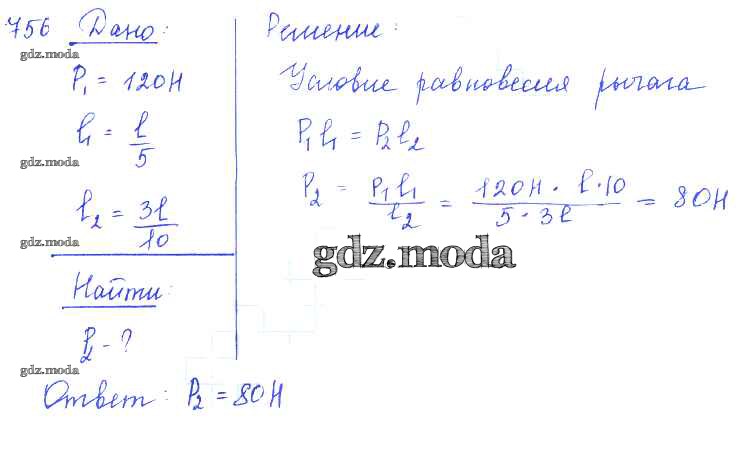 756 Дано:
gdz.moda
P₁ = 120Н
l₁ = l/5
gdz.moda
l₂ = 3l/10
gdz.moda
Найти:
P₂ - ?
gdz.moda
Решение:
Условие равновесия рычага
P₁l₁ = P₂l₂
P₂ = P₁l₁/l₂ = 120Н · l · 10/5 · 3l = 80Н
gdz.moda
Ответ: P₂ = 80Н